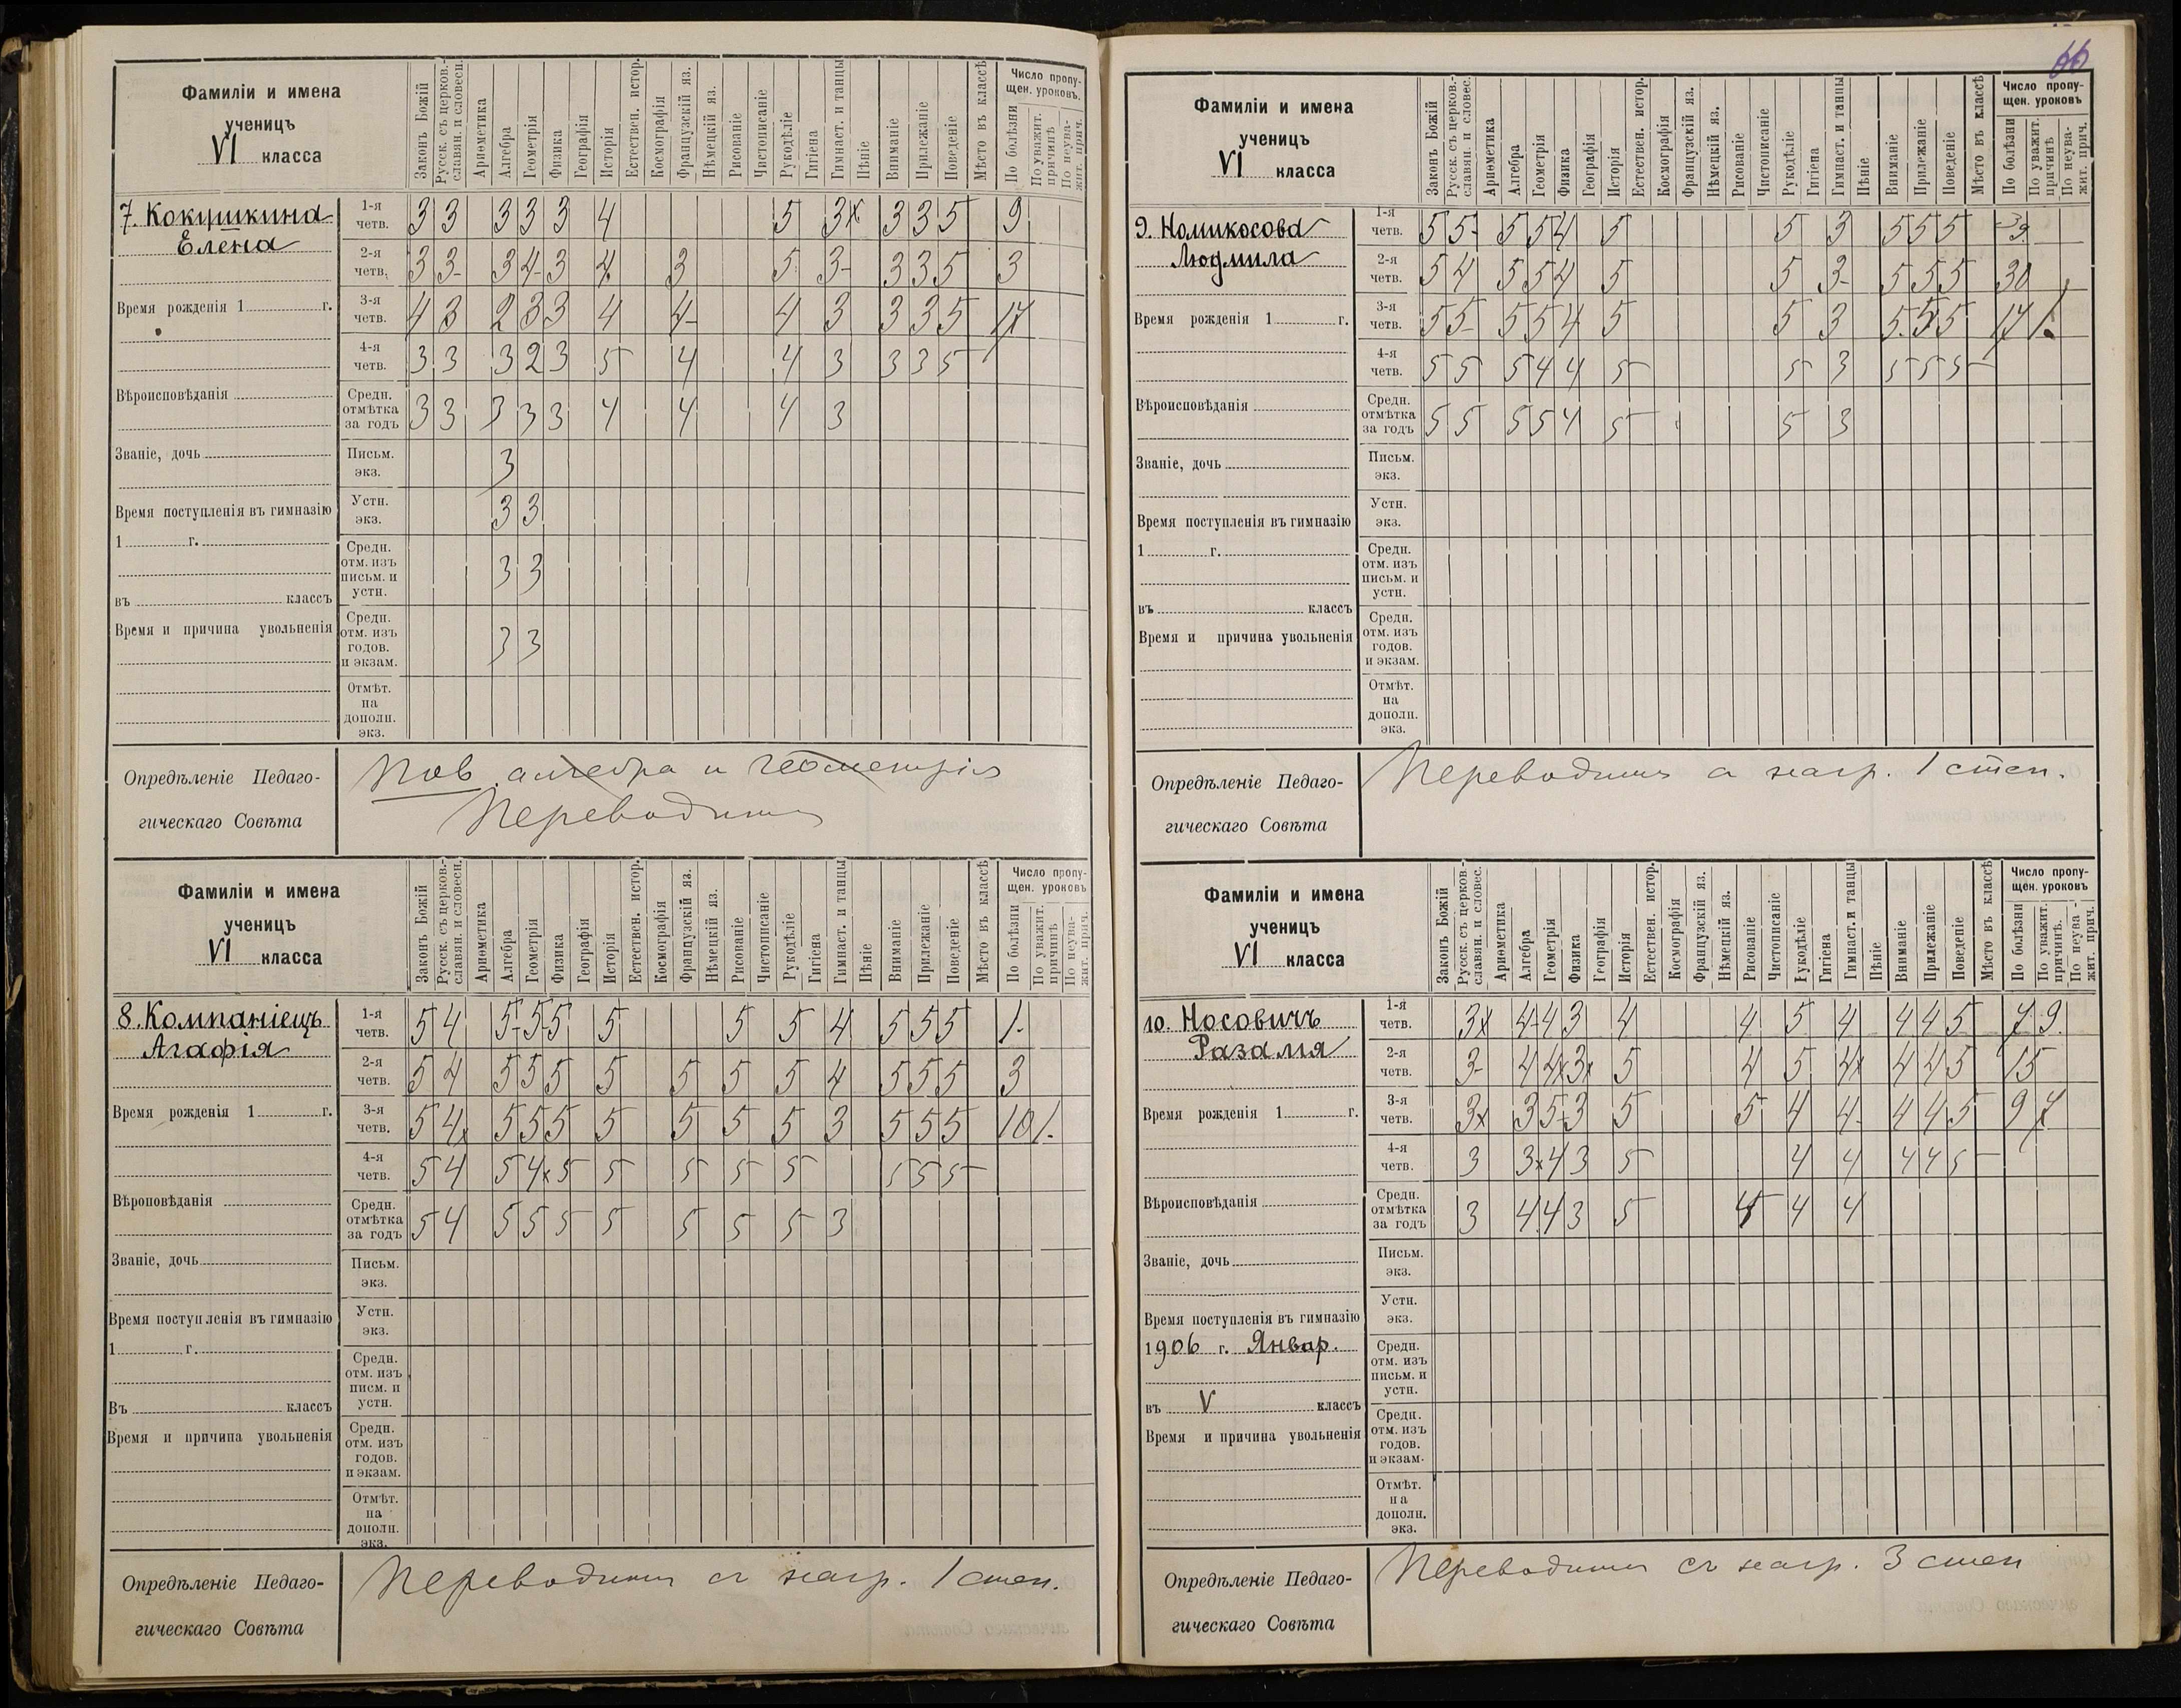 66
Фамиліи и имена
ученицъ
VI класса
Законъ Божій
Русск. съ церков.-
славян. и словесн.
Ариѳметика
Алгебра
Геометрія
Физика
Географія
Исторія
Естествен. истор.
Космографія
Французскій яз.
Нѣмецкій яз.
Рисованіе
Чистописаніе
Рукодѣліе
Гигіена
Гимнаст. и танцы
Пѣніе
Вниманіе
Прилежаніе
Поведеніе
Мѣсто въ классѣ
Число пропу-
щен. уроковъ.
По болѣзни
По уважит.
причинѣ
По неува-
жит. прич.
7. Кокушкина
Елена
1-я четв. 3 3 3 3 3 4 5 3x 3 3 5 9
2-я четв. 3 3- 3 4- 3 4 3 5 3- 3 3 5 3
3-я четв. 4 3 2 3 3 4 4- 4 3 3 3 5 17
4-я четв. 3 3 3 2 3 5 4 4 3 3 3 5
Средн. отмѣтка за годъ 3 3 3 3 3 4 4 4 3
Письм. экз. 3
Устн. экз. 3 3
Средн. отм. изъ письм. и устн. 3 3
Средн. отм. изъ годов. и экзам. 3 3
Отмѣт. на дополн. экз.
Время рожденія 1 г.
Вѣроисповѣданія
Званіе, дочь
Время поступленія въ гимназію
1 г.
въ классъ
Время и причина увольненія
Опредѣленіе Педаго-
гическаго Совѣта
Пов. алгебра и геометрія
Переводится
Фамиліи и имена
ученицъ
VI класса
Законъ Божій
Русск. съ церков.-
славян. и словесн.
Ариѳметика
Алгебра
Геометрія
Физика
Географія
Исторія
Естествен. истор.
Космографія
Французскій яз.
Нѣмецкій яз.
Рисованіе
Чистописаніе
Рукодѣліе
Гигіена
Гимнаст. и танцы
Пѣніе
Вниманіе
Прилежаніе
Поведеніе
Мѣсто въ классѣ
Число пропу-
щен. уроковъ
По болѣзни
По уважит.
причинѣ
По неува-
жит. прич.
8. Компаніецъ
Агафія
1-я четв. 5 4 5- 5- 5 5 5 5 4 5 5 5 1.
2-я четв. 5 4 5 5 5 5 5 5 5 4 5 5 5 3
3-я четв. 5 4x 5 5 5 5 5 5 5 3 5 5 5 10 1.
4-я четв. 5 4 5 4x 5 5 5 5 5 5 5 5
Средн. отмѣтка за годъ 5 4 5 5 5 5 5 5 5 3
Письм. экз.
Устн. экз.
Средн. отм. изъ писм. и устн.
Средн. отм. изъ годов. и экзам.
Отмѣт. на дополн. экз.
Время рожденія 1 г.
Вѣроповѣданія
Званіе, дочь
Время поступленія въ гимназію
1 г.
Въ классъ
Время и причина увольненія
Опредѣленіе Педаго-
гическаго Совѣта
Переводится съ нагр. 1 степ.
Фамиліи и имена
ученицъ
VI класса
Законъ Божій
Русск. съ церков.-
славян. и словес.
Ариѳметика
Алгебра
Геометрія
Физика
Географія
Исторія
Естествен. истор.
Космографія
Французскій яз.
Нѣмецкій яз.
Рисованіе
Чистописаніе
Рукодѣліе
Гигіена
Гимнаст. и танцы
Пѣніе
Вниманіе
Прилежаніе
Поведеніе
Мѣсто въ классѣ
Число пропу-
щен. уроковъ
По болѣзни
По уважит.
причинѣ
По неува-
жит. прич.
9. Номикосова
Людмила
1-я четв. 5 5- 5 5 4 5 5 3 5 5 5 3
2-я четв. 5 4 5 5 4 5 5 3- 5 5 5 30
3-я четв. 5 5- 5 5 4 5 5 3 5 5 5 17 1.
4-я четв. 5 5 5 4 4 5 5 3 5 5 5
Средн. отмѣтка за годъ 5 5 5 5 4 5 5 3
Письм. экз.
Устн. экз.
Средн. отм. изъ письм. и устн.
Средн. отм. изъ годов. и экзам.
Отмѣт. на дополн. экз.
Время рожденія 1 г.
Вѣроисповѣданія
Званіе, дочь
Время поступленія въ гимназію
1 г.
въ классъ
Время и причина увольненія
Опредѣленіе Педаго-
гическаго Совѣта
Переводится съ нагр. 1 степ.
Фамиліи и имена
ученицъ
VI класса
Законъ Божій
Русск. съ церков.-
славян. и словес.
Ариѳметика
Алгебра
Геометрія
Физика
Географія
Исторія
Естествен. истор.
Космографія
Французскій яз.
Нѣмецкій яз.
Рисованіе
Чистописаніе
Рукодѣліе
Гигіена
Гимнаст. и танцы
Пѣніе
Вниманіе
Прилежаніе
Поведеніе
Мѣсто въ классѣ
Число пропу-
щен. уроковъ
По болѣзни
По уважит.
причинѣ.
По неува-
жит. прич.
10. Носовичъ
Разалія
1-я четв. 3x 4- 4 3 4 4 5 4 4 4 5 7 9.
2-я четв. 3- 4 4x 3x 5 4 5 4x 4 4 5 15
3-я четв. 3x 3 5- 3 5 5 4 4 4 4 5 9 7
4-я четв. 3 3x 4 3 5 4 4 4 4 5
Средн. отмѣтка за годъ 3 4 4 3 5 4 4 4
Письм. экз.
Устн. экз.
Средн. отм. изъ письм. и устн.
Средн. отм. изъ годов. и экзам.
Отмѣт. на дополн. экз.
Время рожденія 1 г.
Вѣроисповѣданія
Званіе, дочь
Время поступленія въ гимназію
1906 г. Январ.
въ V классъ
Время и причина увольненія
Опредѣленіе Педаго-
гическаго Совѣта
Переводится съ нагр. 3 степ